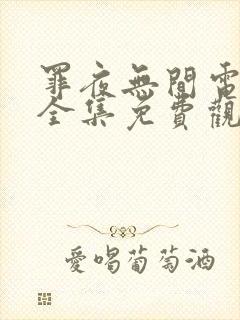 罪夜無間電
全集免費觀
愛喝葡萄酒